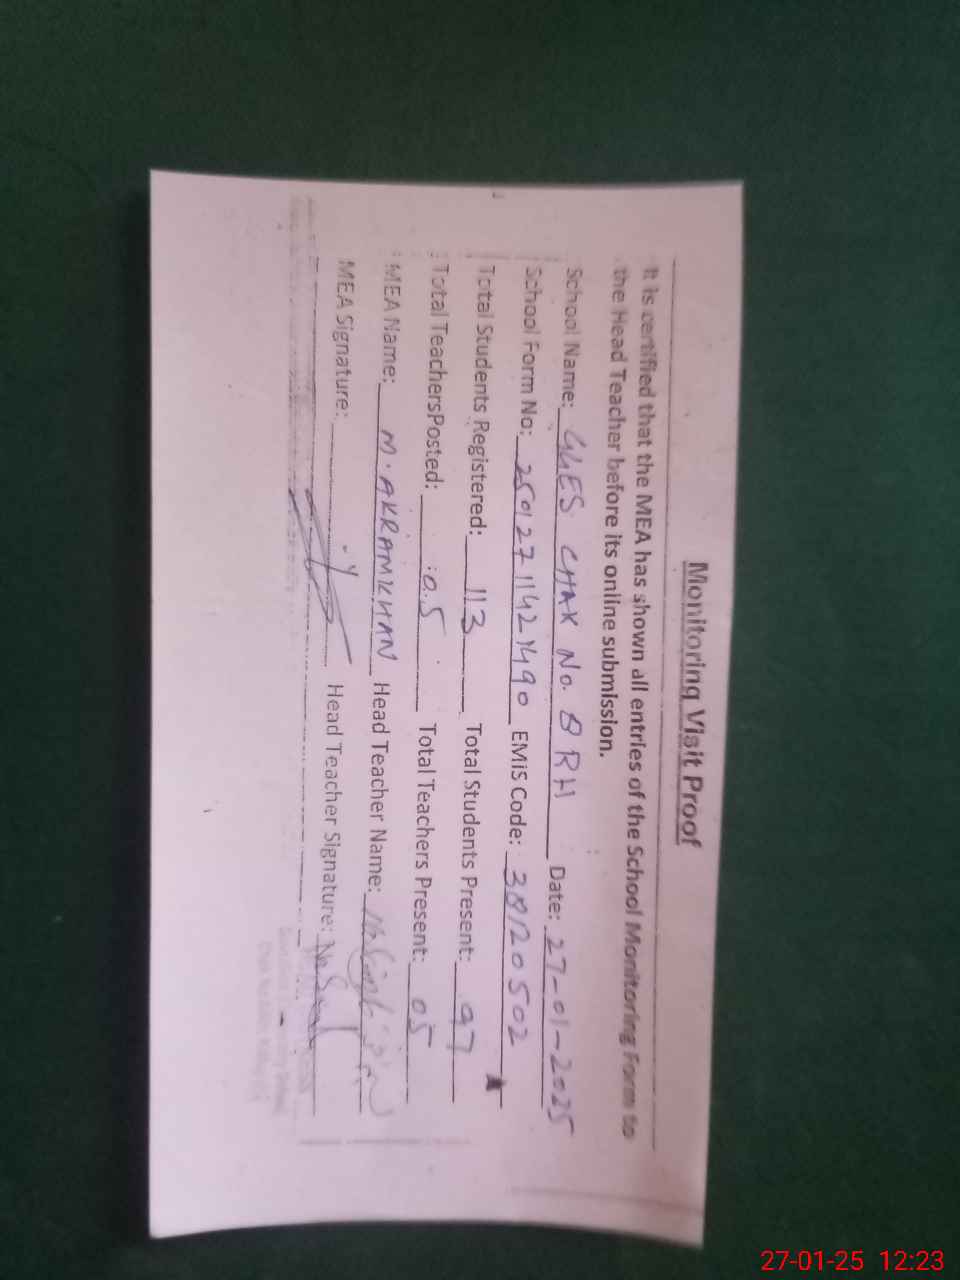 Monitoring Visit Proof
It is certified that the MEA has shown all entries of the School Monitoring Form to
the Head Teacher before its online submission.
School Name: GGES CHAK No. 8 RH Date: 27-01-2025
School Form No: 25012711421490 EMiS Code: 38120502
Total Students Registered: 113 Total Students Present: 97
Total TeachersPosted: 05 Total Teachers Present: 05
MEA Name: M. AKRAM KHAN Head Teacher Name:
MEA Signature: Head Teacher Signature:
27-01-25 12:23